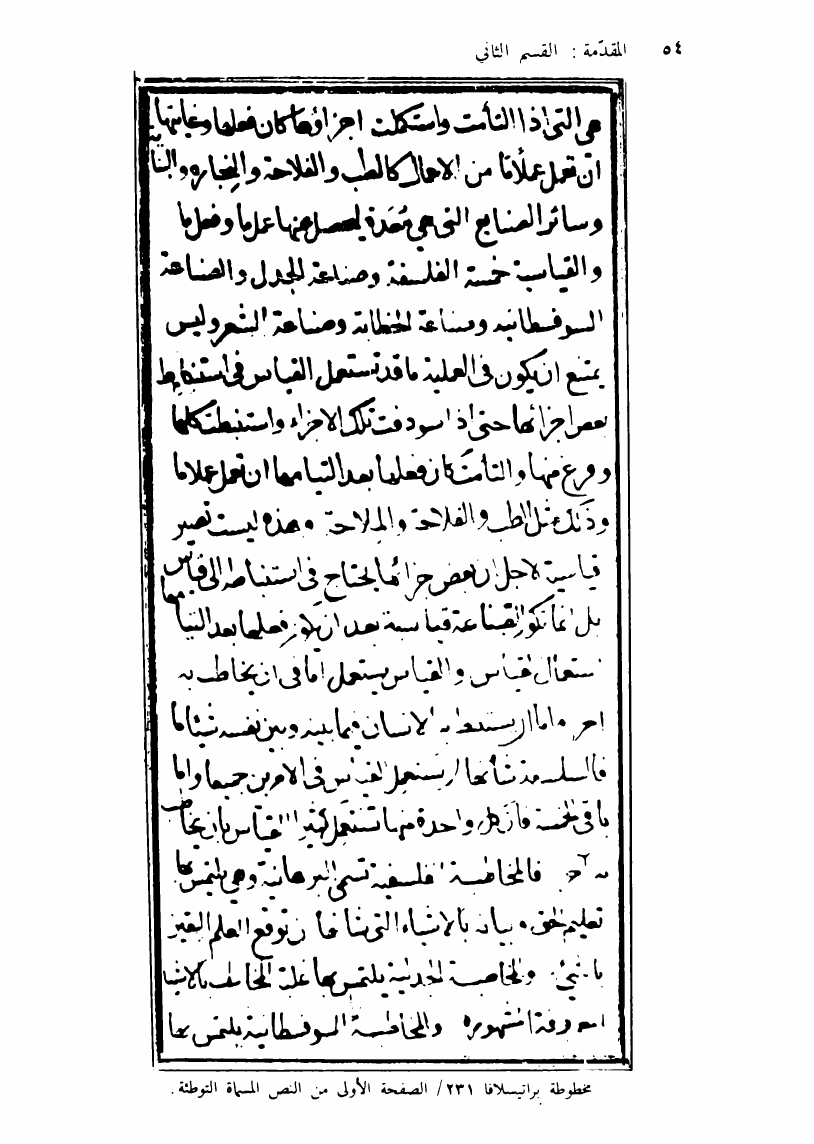 ٥٤ المقدّمة : القسم الثاني
هي التي اذا التأمت واستكملت اجزاؤها كان فعلها وغايتها
ان تعمل عملا ما من الاعمال كالطب والفلاحة والنجاره والبنا
وسائر الصنايع التي هي معدة ليحصل عنها عمل ما وفعل ما
والقياسية خمسة الفلسفة وصناعة الجدل والصناعة
السوفسطائيه وصناعة الخطابة وصناعة الشعر وليس
يمتنع ان يكون في العملية ما قد تستعمل القياس في استنباط
بعض اجزائها حتى اذا تلك الاجزاء واستنبطت كلها
وفرغ منها والتأمت كان فعلها بعد التيامها ان تعمل عملا ما
وذلك مثل الطب والفلاحة والملاحة وهذه ليست تصير
قياسية لاجل ان بعض اجزائها يحتاج في استنباطه الى قياس
بل انما تكون الصناعة قياسية بعد ان يكون فعلها بعد التيامها
استعمال القياس والقياس يستعمل اما في ان يخاطب به
اخر واما ان يستنبط به الانسان فيما بينه وبين نفسه شيئا ما
فالفلسفة شأنها ان تستعمل القياس في الامرين جميعا واما
باقي الخمسة فان كل واحدة منها تستعمل القياس بان يخاطب
به اخر فالمخاطبة الفلسفية تسمى البرهانية وهي يلتمس بها
تعليم الحق وبيانه بالاشياء التي شأنها ان توقع العلم اليقين
بالشيء والمخاطبة الجدلية يلتمس بها غلبة المخاطب بالاشيا
المعروفة المشهوره والمخاطبة السوفسطائية يلتمس بها
مخطوطة براتيسلافا ٢٣١/ الصفحة الأولى من النص المسماة التوطئة .